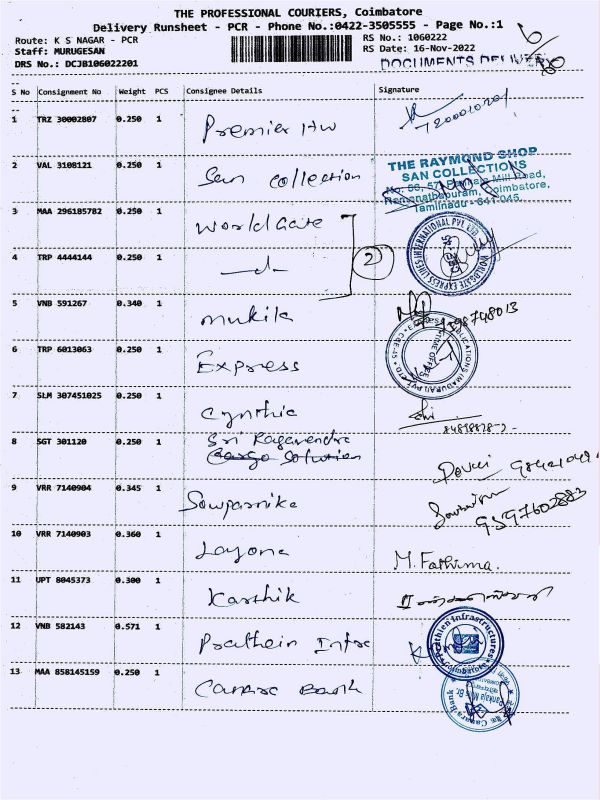 THE PROFESSIONAL COURIERS, Coimbatore
Delivery Runsheet - PCR - Phone No.:0422-3505555 - Page No.:1
Route: K S NAGAR - PCR
RS No.: 1060222
Staff: MURUGESAN
RS Date: 16-Nov-2022
DRS No.: DCJB106022201
DOCUMENTS DELIVERY
S No Consignment No Weight PCS Consignee Details Signature
1 TRZ 30002807 0.250 1 Premier HW
2 VAL 3108121 0.250 1 San collection
THE RAYMOND SHOP
SAN COLLECTIONS
Mill Road,
Ramanathapuram, Coimbatore,
Tamilnadu - 641 045.
3 MAA 296185782 0.250 1 World Gate
4 TRP 4444144 0.250 1 2
WORLDGATE EXPRESS LINES INTERNATIONAL PVT LTD
5 VNB 591267 0.340 1 mukila
6 TRP 6013063 0.250 1 Express
7 SLM 307451025 0.250 1 Cynthia
8 SGT 301120 0.250 1 Sri Ragavendra
Cargo Solution
9 VRR 7140904 0.345 1 Sowparnika 9597602883
10 VRR 7140903 0.360 1 Layona M. Fathima.
11 UPT 8045373 0.300 1 Karthik
12 VNB 582143 0.571 1 Prathein Infra
13 MAA 858145159 0.250 1 Canara Bank